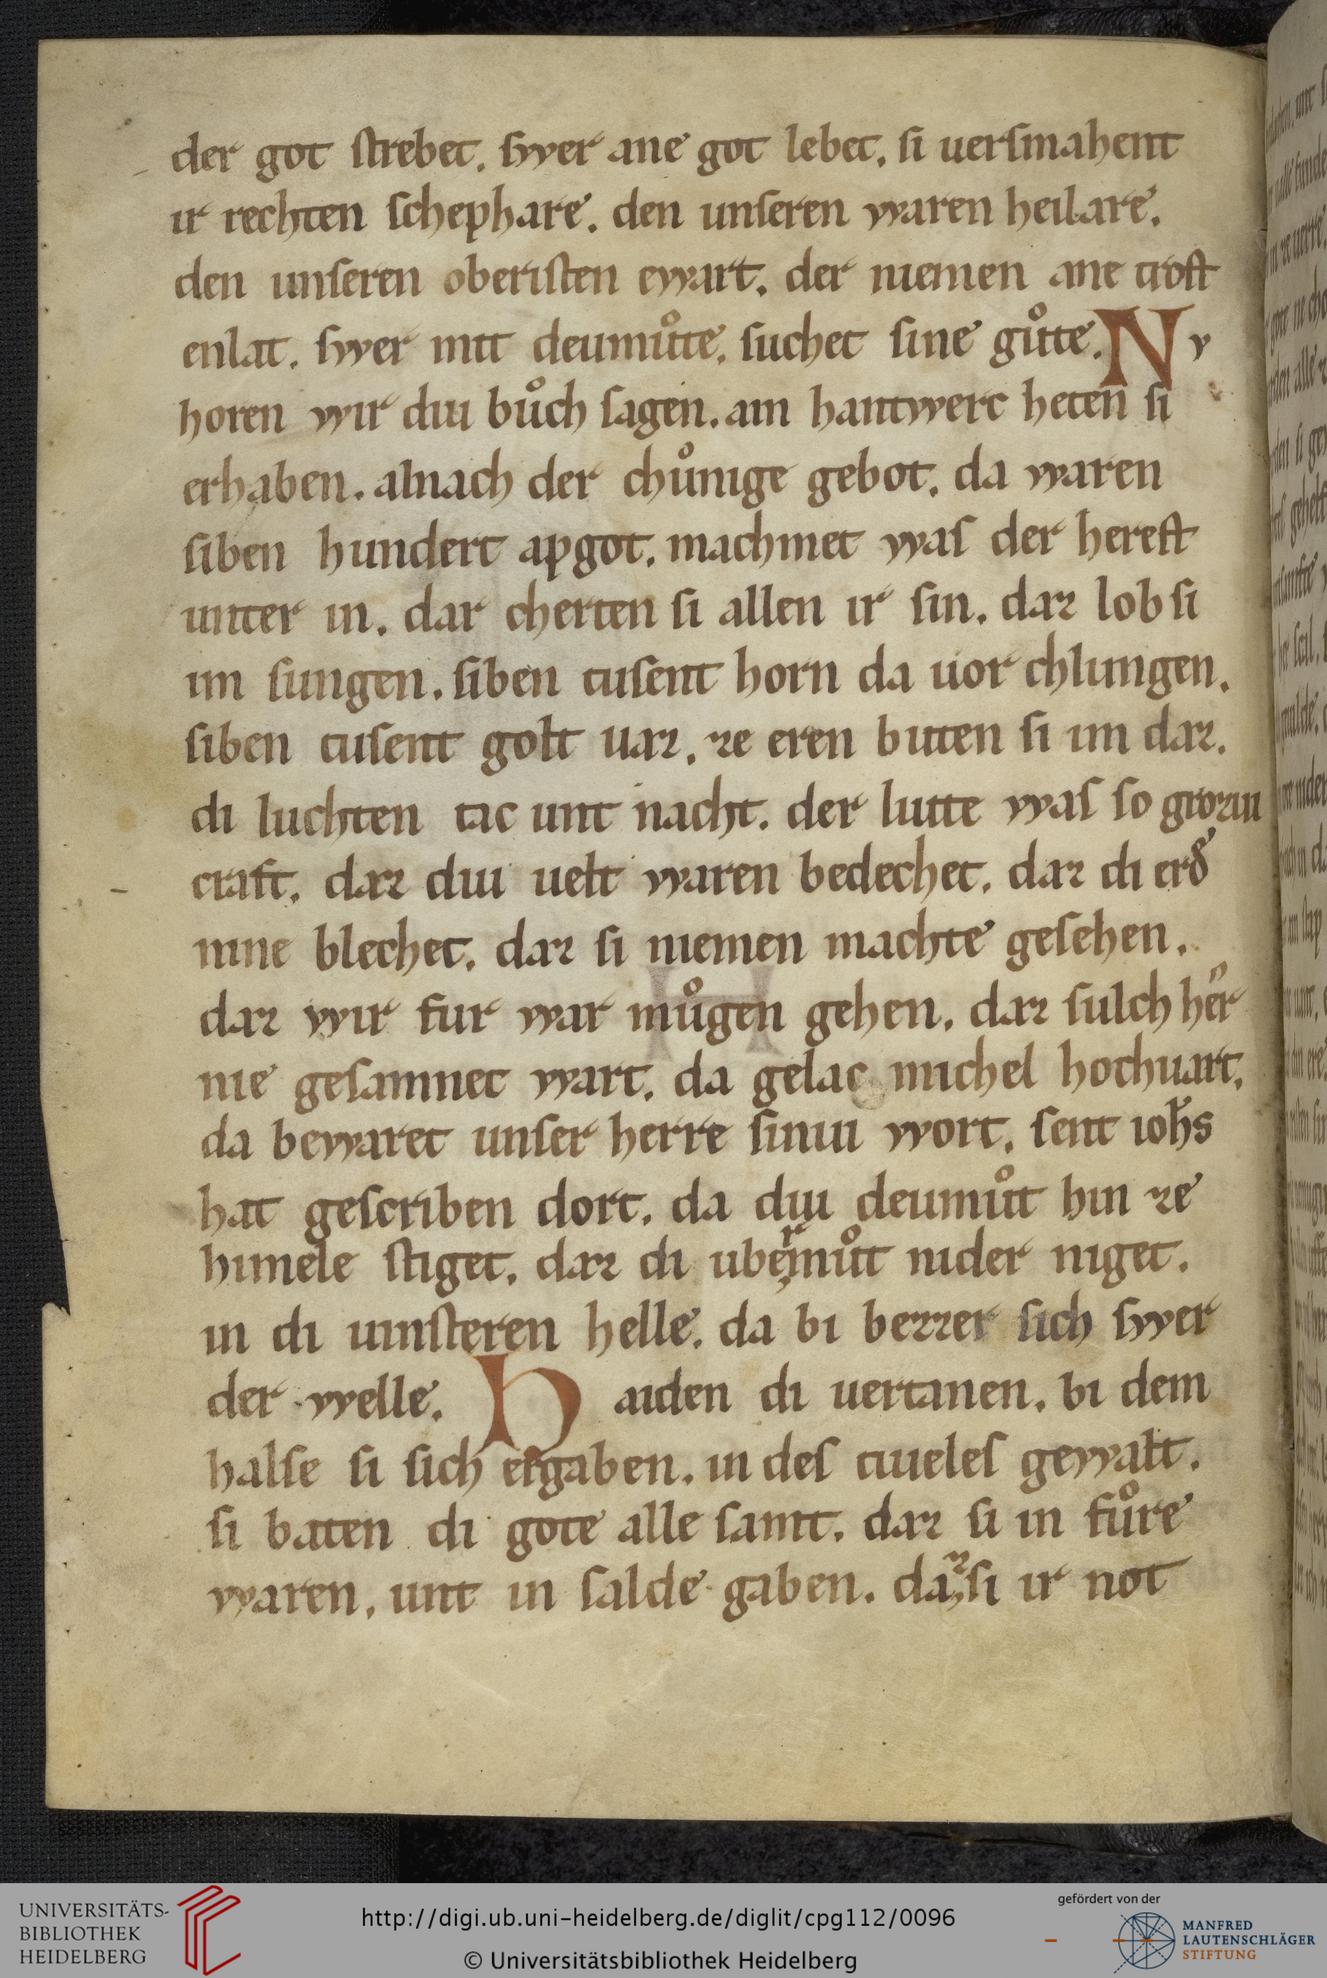 der got ſtrebet. ſwer ane got lebet. ſi uerſmahent
ir rechten ſchephare. den unſeren waren heilare.
den unſeren oberiſten ewart. der niemen ane troſt
enlat. ſwer mit deumuͦte. ſuchet ſine guͦte. N v
horen wir diu buͦch ſagen. ain hantwerc heten ſi
erhaben. alnach der chuͦnige gebot. da waren
ſiben hundert apgot. machmet waſ der hereſt
unter in. dar cherten ſi allen ir ſin. daz lob ſi
im ſungen. ſiben tuſent horn da uor chlungen.
ſiben tuſent golt uaz. ze eren buten ſi im daz.
di luchten tac unt nacht. der lutte waſ ſo groziu
craft. daz diu uelt waren bedechet. daz di erd᷑
nine blechet. daz ſi niemen machte geſehen.
daz wir fur war muͦgen gehen. daz ſulch her
nie geſamnet wart. da gelac michel hochuart.
da bewaret unſer herre ſiniu wort. ſent ioh̄s
hat geſcriben dort. da diu deumuͦt hin ze
himele ſtiget. daz di ubermuͦt nider niget.
in di uinſteren helle. da bi bezzer ſich ſwer
der welle. H aiden di uertanen. bi dem
halſe ſi ſich ergaben. in deſ tiueleſ gewalt.
ſi baten di gote alle ſamt. daz ſi in fuͦre
waren. unt in ſalde gaben. daz ſi ir not
UNIVERSITÄTS-
BIBLIOTHEK
HEIDELBERG
http://digi.ub.uni-heidelberg.de/diglit/cpg112/0096
© Universitätsbibliothek Heidelberg
gefördert von der
MANFRED
LAUTENSCHLÄGER
STIFTUNG